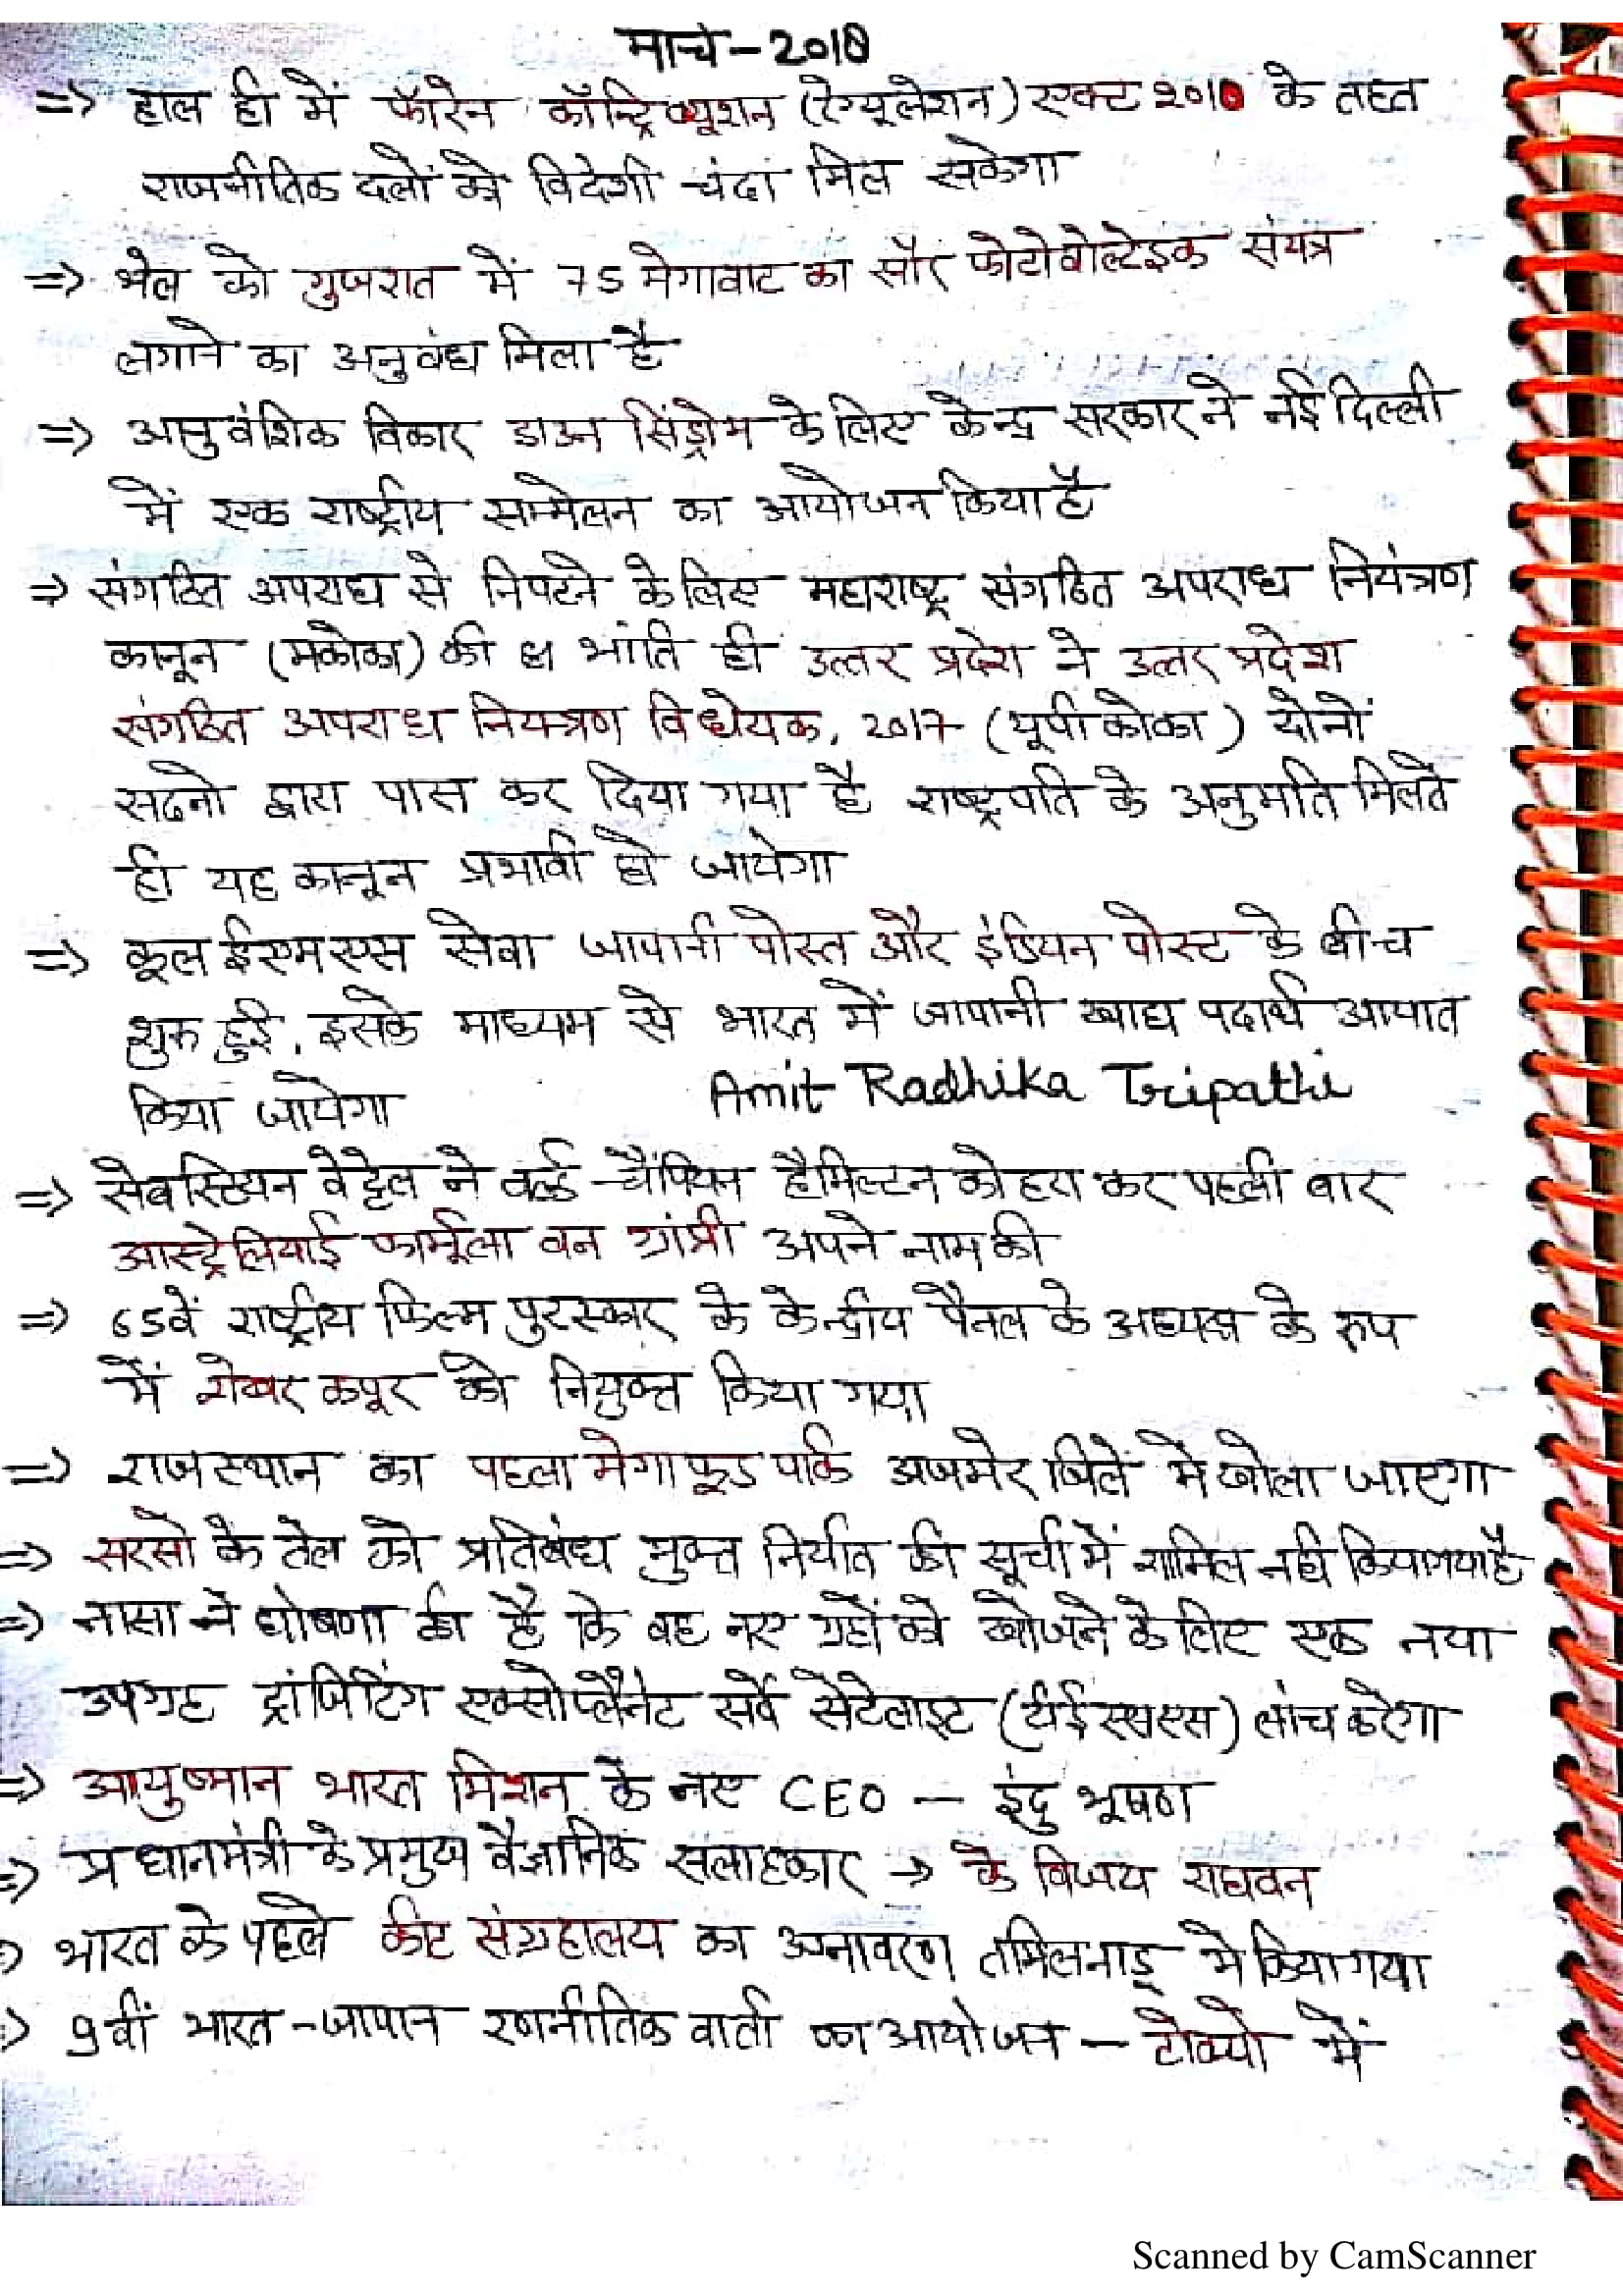 मार्च - 2018
=> हाल ही में फॉरेन कॉन्ट्रिब्यूशन (रेग्यूलेशन) एक्ट 2010 के तहत
राजनीतिक दलों को विदेशी चंदा मिल सकेगा
=> भेल को गुजरात में 75 मेगावाट का सौर फोटोवोल्टेइक संयत्र
लगाने का अनुबंध मिला है
=> आनुवंशिक विकार डाउन सिंड्रोम के लिए केन्द्र सरकार ने नई दिल्ली
में एक राष्ट्रीय सम्मेलन का आयोजन किया है
=> संगठित अपराध से निपटने के लिए महाराष्ट्र संगठित अपराध नियंत्रण
कानून (मकोका) की भांति ही उत्तर प्रदेश ने उत्तर प्रदेश
संगठित अपराध नियन्त्रण विधेयक, 2017 (यूपीकोका) दोनों
सदनो द्वारा पास कर दिया गया है राष्ट्रपति के अनुमति मिलते
ही यह कानून प्रभावी हो जायेगा
=> कूल ईएमएस सेवा जापानी पोस्त और इंडियन पोस्ट के बीच
शुरु हुई, इसके माध्यम से भारत में जापानी खाद्य पदार्थ आयात
किया जायेगा Amit Radhika Tripathi
=> सेबस्टियन वेट्टेल ने वर्ल्ड चैंपियन हैमिल्टन को हरा कर पहली बार
आस्ट्रेलियाई फार्मूला वन ग्रांप्री अपने नाम की
=> 65वें राष्ट्रीय फिल्म पुरस्कार के केन्द्रीय पैनल के अध्यक्ष के रुप
में शेखर कपूर को नियुक्त किया गया
=> राजस्थान का पहला मेगा फूड पार्क अजमेर जिले में खोला जाएगा
=> सरसो के तेल को प्रतिबंध मुक्त निर्यात की सूची में शामिल नही किया गया है
=> नासा ने घोषणा की है कि वह नए ग्रहों को खोजने के लिए एक नया
उपग्रह ट्रांजिटिंग एक्सोप्लैनेट सर्वे सेटेलाइट (टीईएसएस) लांच करेगा
=> आयुष्मान भारत मिशन के नए CEO - इंदु भूषण
=> प्रधानमंत्री के प्रमुख वैज्ञानिक सलाहकार → के विजय राघवन
=> भारत के पहले कीट संग्रहालय का अनावरण तमिलनाडु में किया गया
=> 9वीं भारत-जापान रणनीतिक वार्ता का आयोजन - टोक्यो में
Scanned by CamScanner